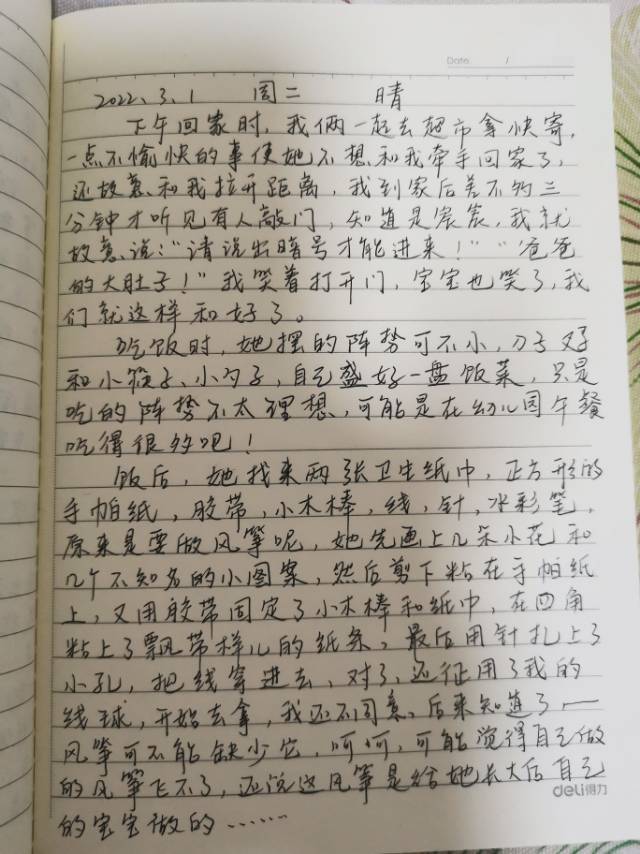 Date. /
2022.3.1 周二 晴
下午回家时,我俩一起去超市拿快寄,
一点不愉快的事使她不想和我牵手回家了,
还故意和我拉开距离,我到家后差不多三
分钟才听见有人敲门,知道是宸宸,我就
故意说:“请说出暗号才能进来!”“爸爸
的大肚子!”我笑着打开门,宝宝也笑了,我
们就这样和好了。
吃饭时,她摆的阵势可不小,刀子叉子
和小筷子、小勺子,自己盛好一盘饭菜,只是
吃的阵势不太理想,可能是在幼儿园午餐
吃得很多吧!
饭后,她找来两张卫生纸巾,正方形的
手帕纸,胶带,小木棒,线,针,水彩笔,
原来是要做风筝呢,她先画上几朵小花和
几个不知名的小图案,然后剪下粘在手帕纸
上,又用胶带固定了小木棒和纸巾,在四角
粘上了飘带样儿的纸条,最后用针扎上了
小孔,把线穿进去,对了,还征用了我的
线球,开始去拿,我还不同意,后来知道了——
风筝可不能缺少它,呵呵,可能觉得自己做
的风筝飞不了,还说这风筝是给她长大后自己
的宝宝做的……
deli得力